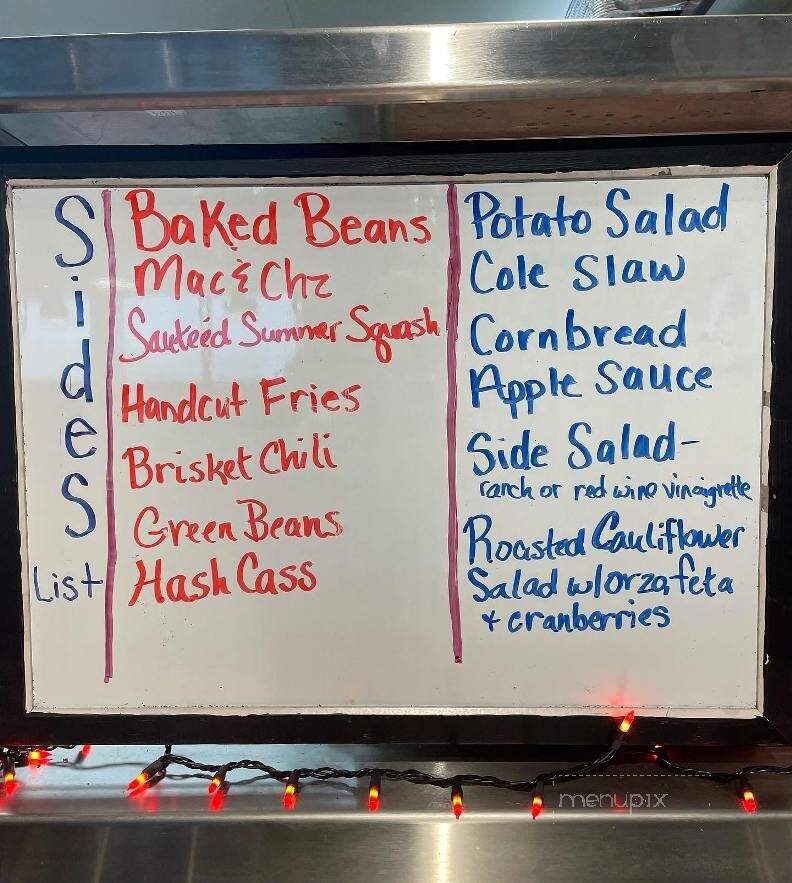 Sides
List
Baked Beans
Mac & Chz
Sauteéd Summer Squash
Handcut Fries
Brisket Chili
Green Beans
Hash Cass
Potato Salad
Cole Slaw
Cornbread
Apple Sauce
Side Salad-
ranch or red wine vinaigrette
Roasted Cauliflower
Salad w/orzo, feta
+ cranberries
menupix